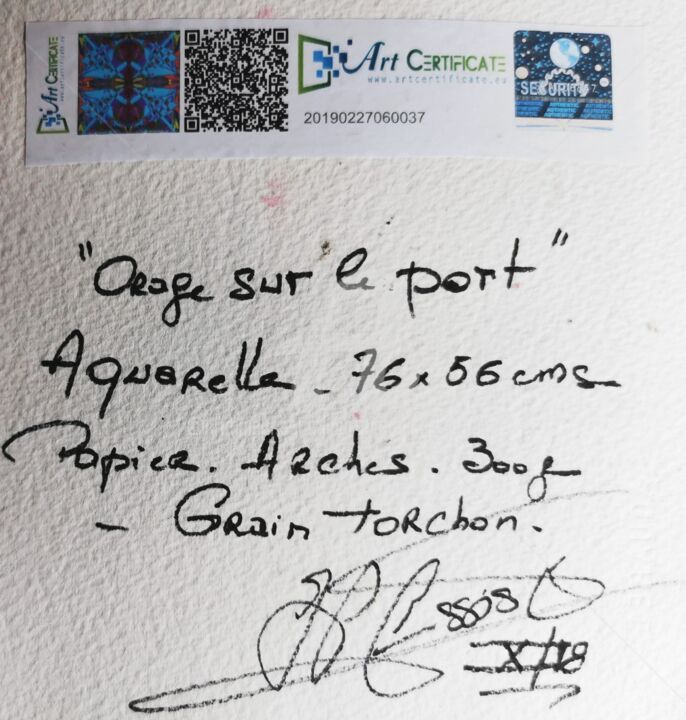 Art CERTIFICATE
Art CERTIFICATE
www.artcertificate.eu
20190227060037
SECURITY
"Orage sur le port"
Aquarelle - 76 x 56 cms
Papier. Arches. 300g
- Grain torchon.
X/18